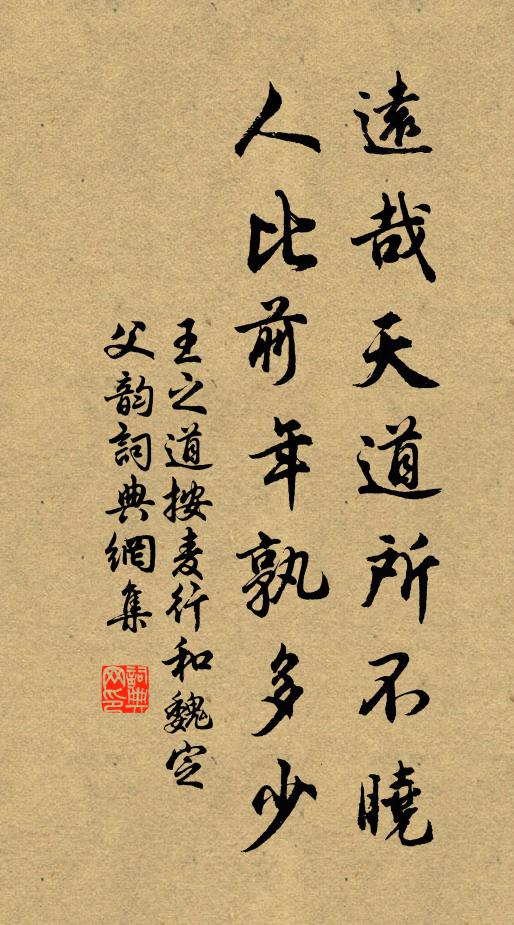 遠哉天道所不曉
人比前年孰多少
王之道按麦行和魏定
父韵詞典網集
詞典網印